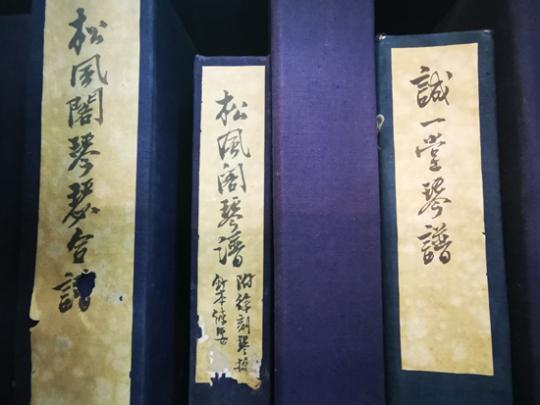 松風閣琴瑟合譜
松風閣琴譜
附徐刻琴趣
誠一堂琴譜